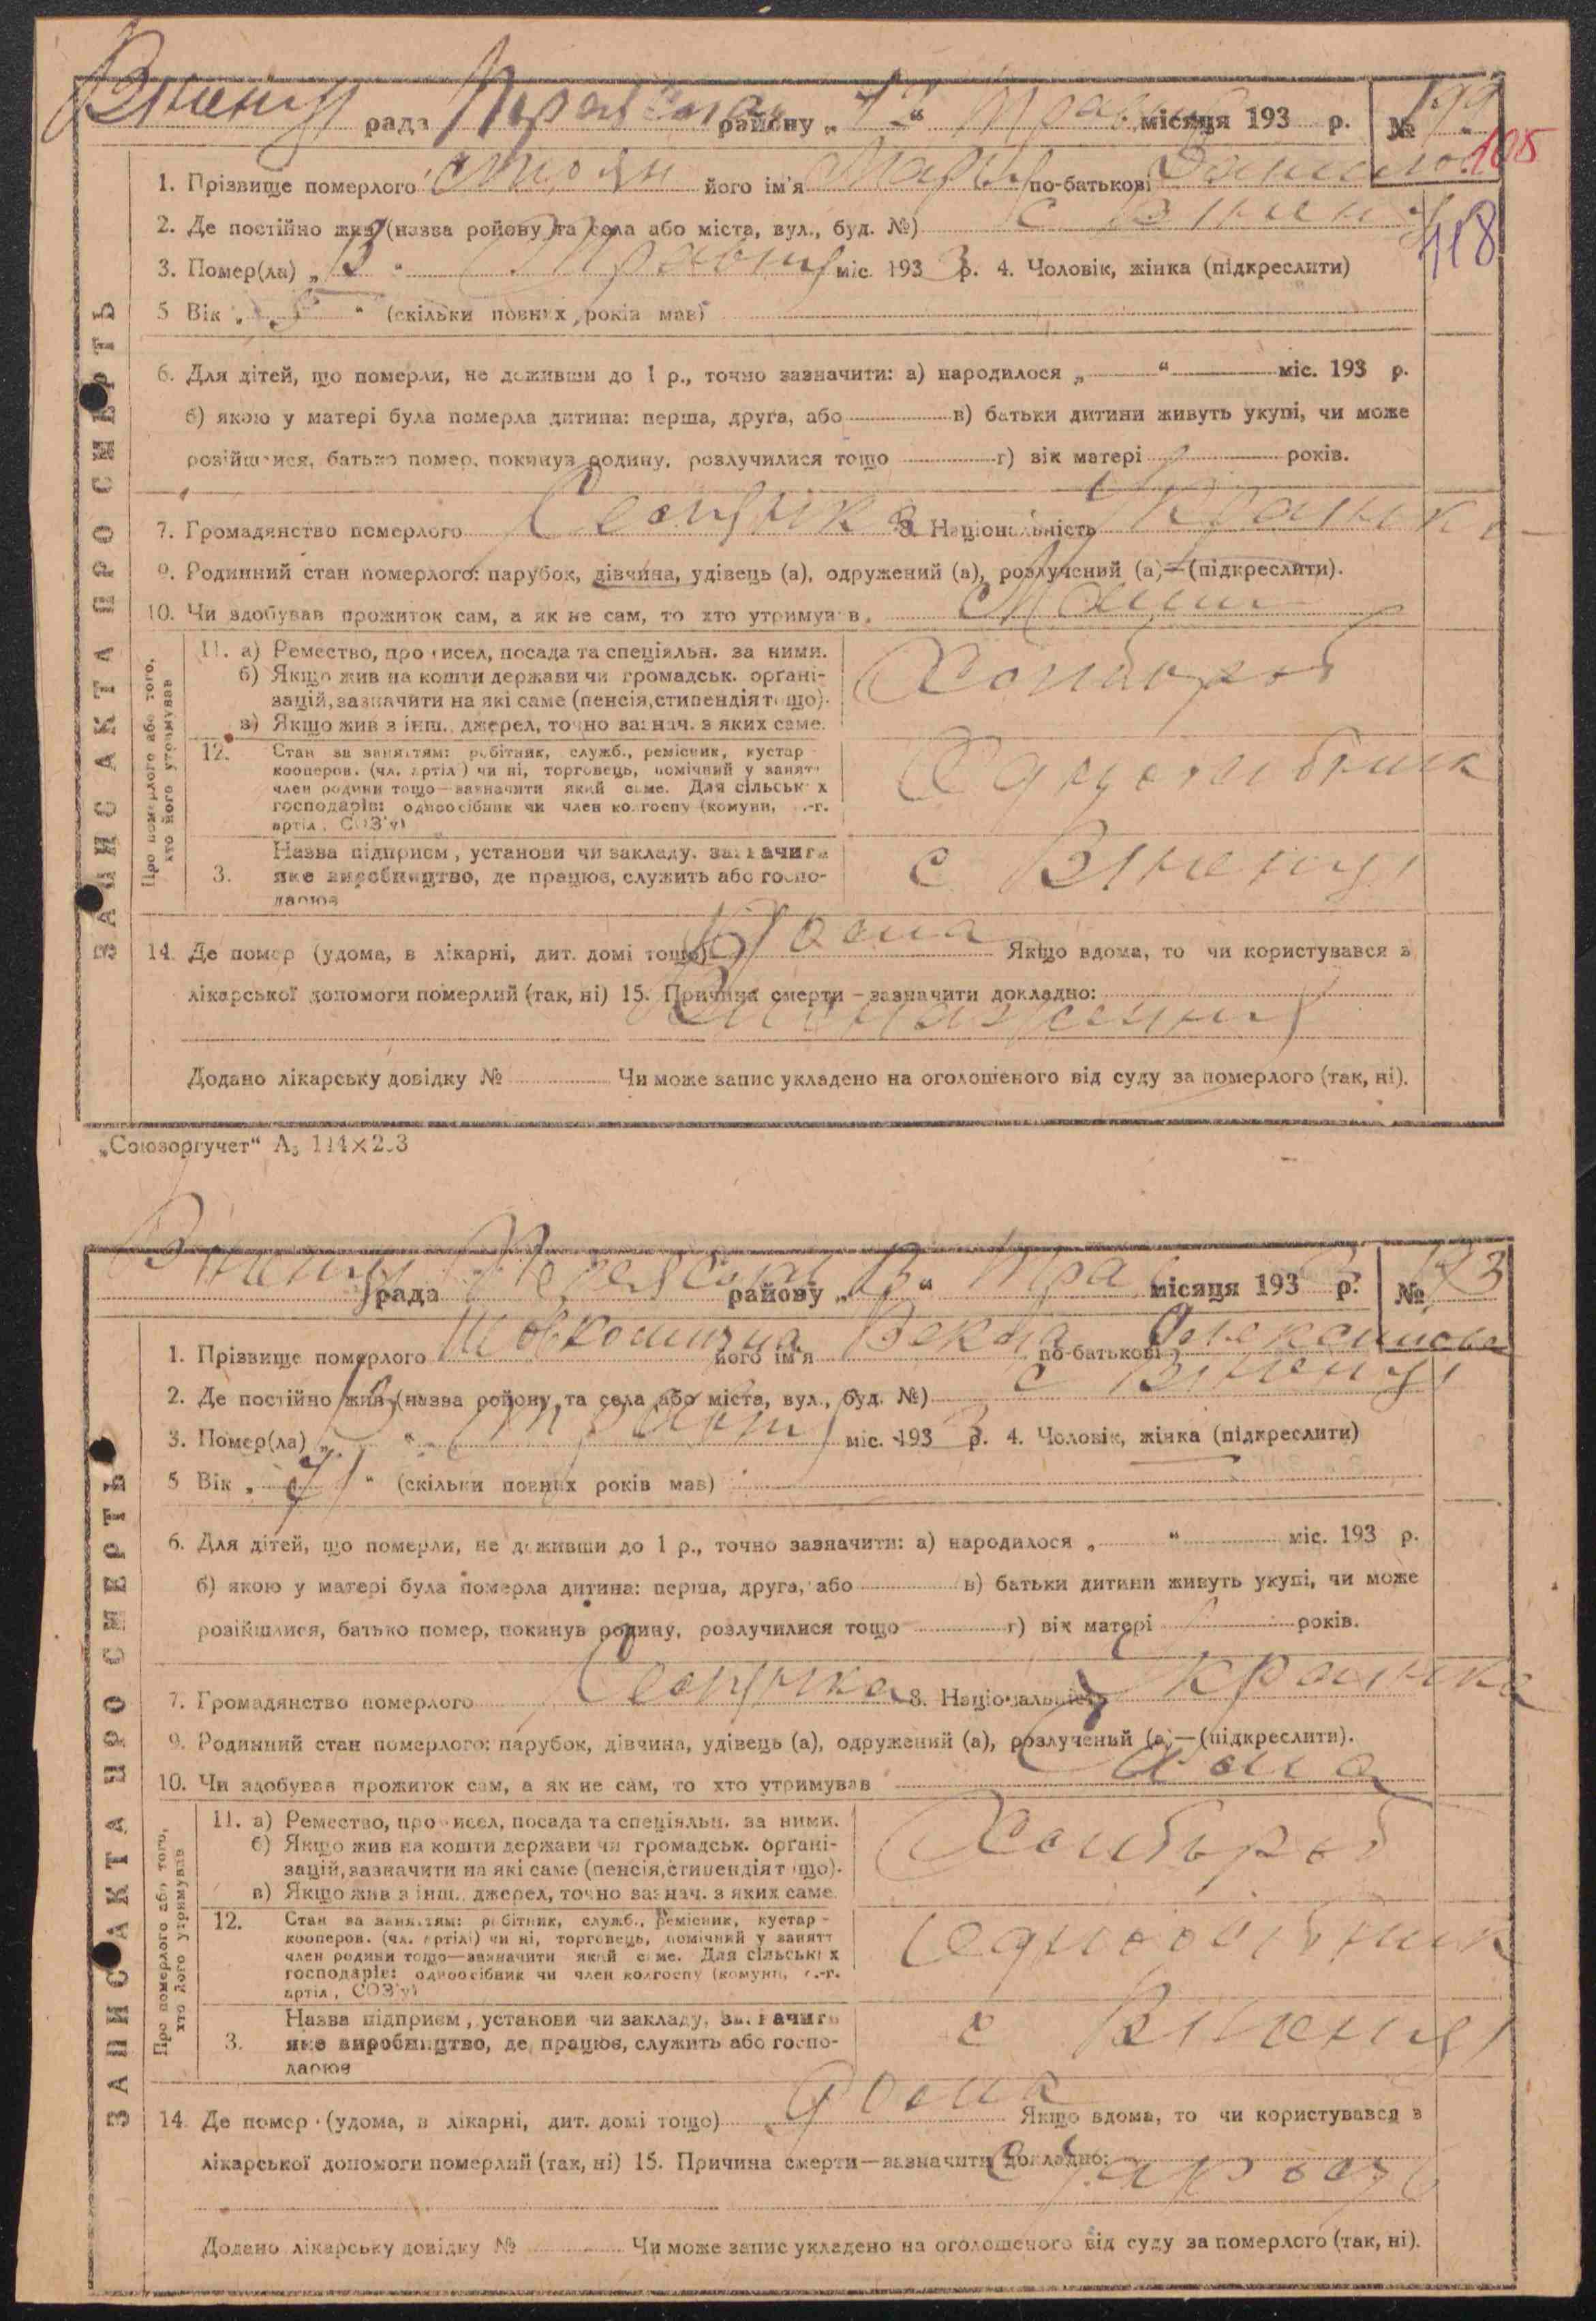 рада району „ 13 “ місяця 193 р. №
105
118
1. Прізвище померлого Стоян його ім'я Марія по-батькові
2. Де постійно жив (назва району та села або міста, вул., буд. №) с
3. Помер(ла) „ 13 “ Травня міс. 193 3 р. 4. Чоловік, жінка (підкреслити)
5 Вік „ “ (скільки повних років мав)
6. Для дітей, що померли, не доживши до 1 р., точно зазначити: а) народилося „ “ міс. 193 р.
б) якою у матері була померла дитина: перша, друга, або в) батьки дитини живуть укупі, чи може
розійшлися, батько помер, покинув родину, розлучилися тощо г) вік матері років.
7. Громадянство померлого 8. Національність Українка
9. Родинний стан померлого: парубок, дівчина, удівець (а), одружений (а), розлучений (а)—(підкреслити).
10. Чи здобував прожиток сам, а як не сам, то хто утримував
ЗАПИС АКТА ПРО СМЕРТЬ
Про померлого або того, хто його утримував
11. а) Ремество, промисел, посада та спеціяльн. за ними. Хлібороб
б) Якщо жив на кошти держави чи громадськ. органі-
зацій, зазначити на які саме (пенсія, стипендія тощо).
в) Якщо жив з інш. джерел, точно зазнач. з яких саме.
12. Стан за заняттям: робітник, служб., ремісник, кустар -
кооперов. (чл. артілі) чи ні, торговець, помічний у занятт
член родини тощо—зазначити який саме. Для сільських Одноосібник
господарів: одноосібник чи член колгоспу (комуни, с.-г.
артіл, СОЗ'у)
Назва підприєм, установи чи закладу, зазначить
3. яке виробництво, де працює, служить або госпо- с
дарює
14. Де помер (удома, в лікарні, дит. домі тощо) Дома Якщо вдома, то чи користувався з
лікарської допомоги померлий (так, ні) 15. Причина смерти—зазначити докладно:
Виснаження
Додано лікарську довідку № Чи може запис укладено на оголошеного від суду за померлого (так, ні).
„Союзоргучет“
рада району „ 13 “ місяця 193 3 р. №
1. Прізвище померлого Шовкоплясна його ім'я Векла по-батькові
2. Де постійно жив (назва району та села або міста, вул., буд. №) с
3. Помер(ла) „ 13 “ Травня міс. 193 3 р. 4. Чоловік, жінка (підкреслити)
5 Вік „ “ (скільки повних років мав)
6. Для дітей, що померли, не доживши до 1 р., точно зазначити: а) народилося „ “ міс. 193 р.
б) якою у матері була померла дитина: перша, друга, або в) батьки дитини живуть укупі, чи може
розійшлися, батько помер, покинув родину, розлучилися тощо г) вік матері років.
7. Громадянство померлого 8. Національність Українка
9. Родинний стан померлого: парубок, дівчина, удівець (а), одружений (а), розлучений (а)—(підкреслити).
10. Чи здобував прожиток сам, а як не сам, то хто утримував Сама
ЗАПИС АКТА ПРО СМЕРТЬ
Про померлого або того, хто його утримував
11. а) Ремество, промисел, посада та спеціяльн. за ними. Хлібороб
б) Якщо жив на кошти держави чи громадськ. органі-
зацій, зазначити на які саме (пенсія, стипендія тощо).
в) Якщо жив з інш. джерел, точно зазнач. з яких саме.
12. Стан за заняттям: робітник, служб., ремісник, кустар -
кооперов. (чл. артілі) чи ні, торговець, помічний у занятт
член родини тощо—зазначити який саме. Для сільських Одноосібник
господарів: одноосібник чи член колгоспу (комуни, с.-г.
артіл, СОЗ'у)
Назва підприєм, установи чи закладу, зазначить
3. яке виробництво, де працює, служить або госпо- с
дарює
14. Де помер (удома, в лікарні, дит. домі тощо) Дома Якщо вдома, то чи користувався з
лікарської допомоги померлий (так, ні) 15. Причина смерти—зазначити докладно:
Додано лікарську довідку № Чи може запис укладено на оголошеного від суду за померлого (так, ні).